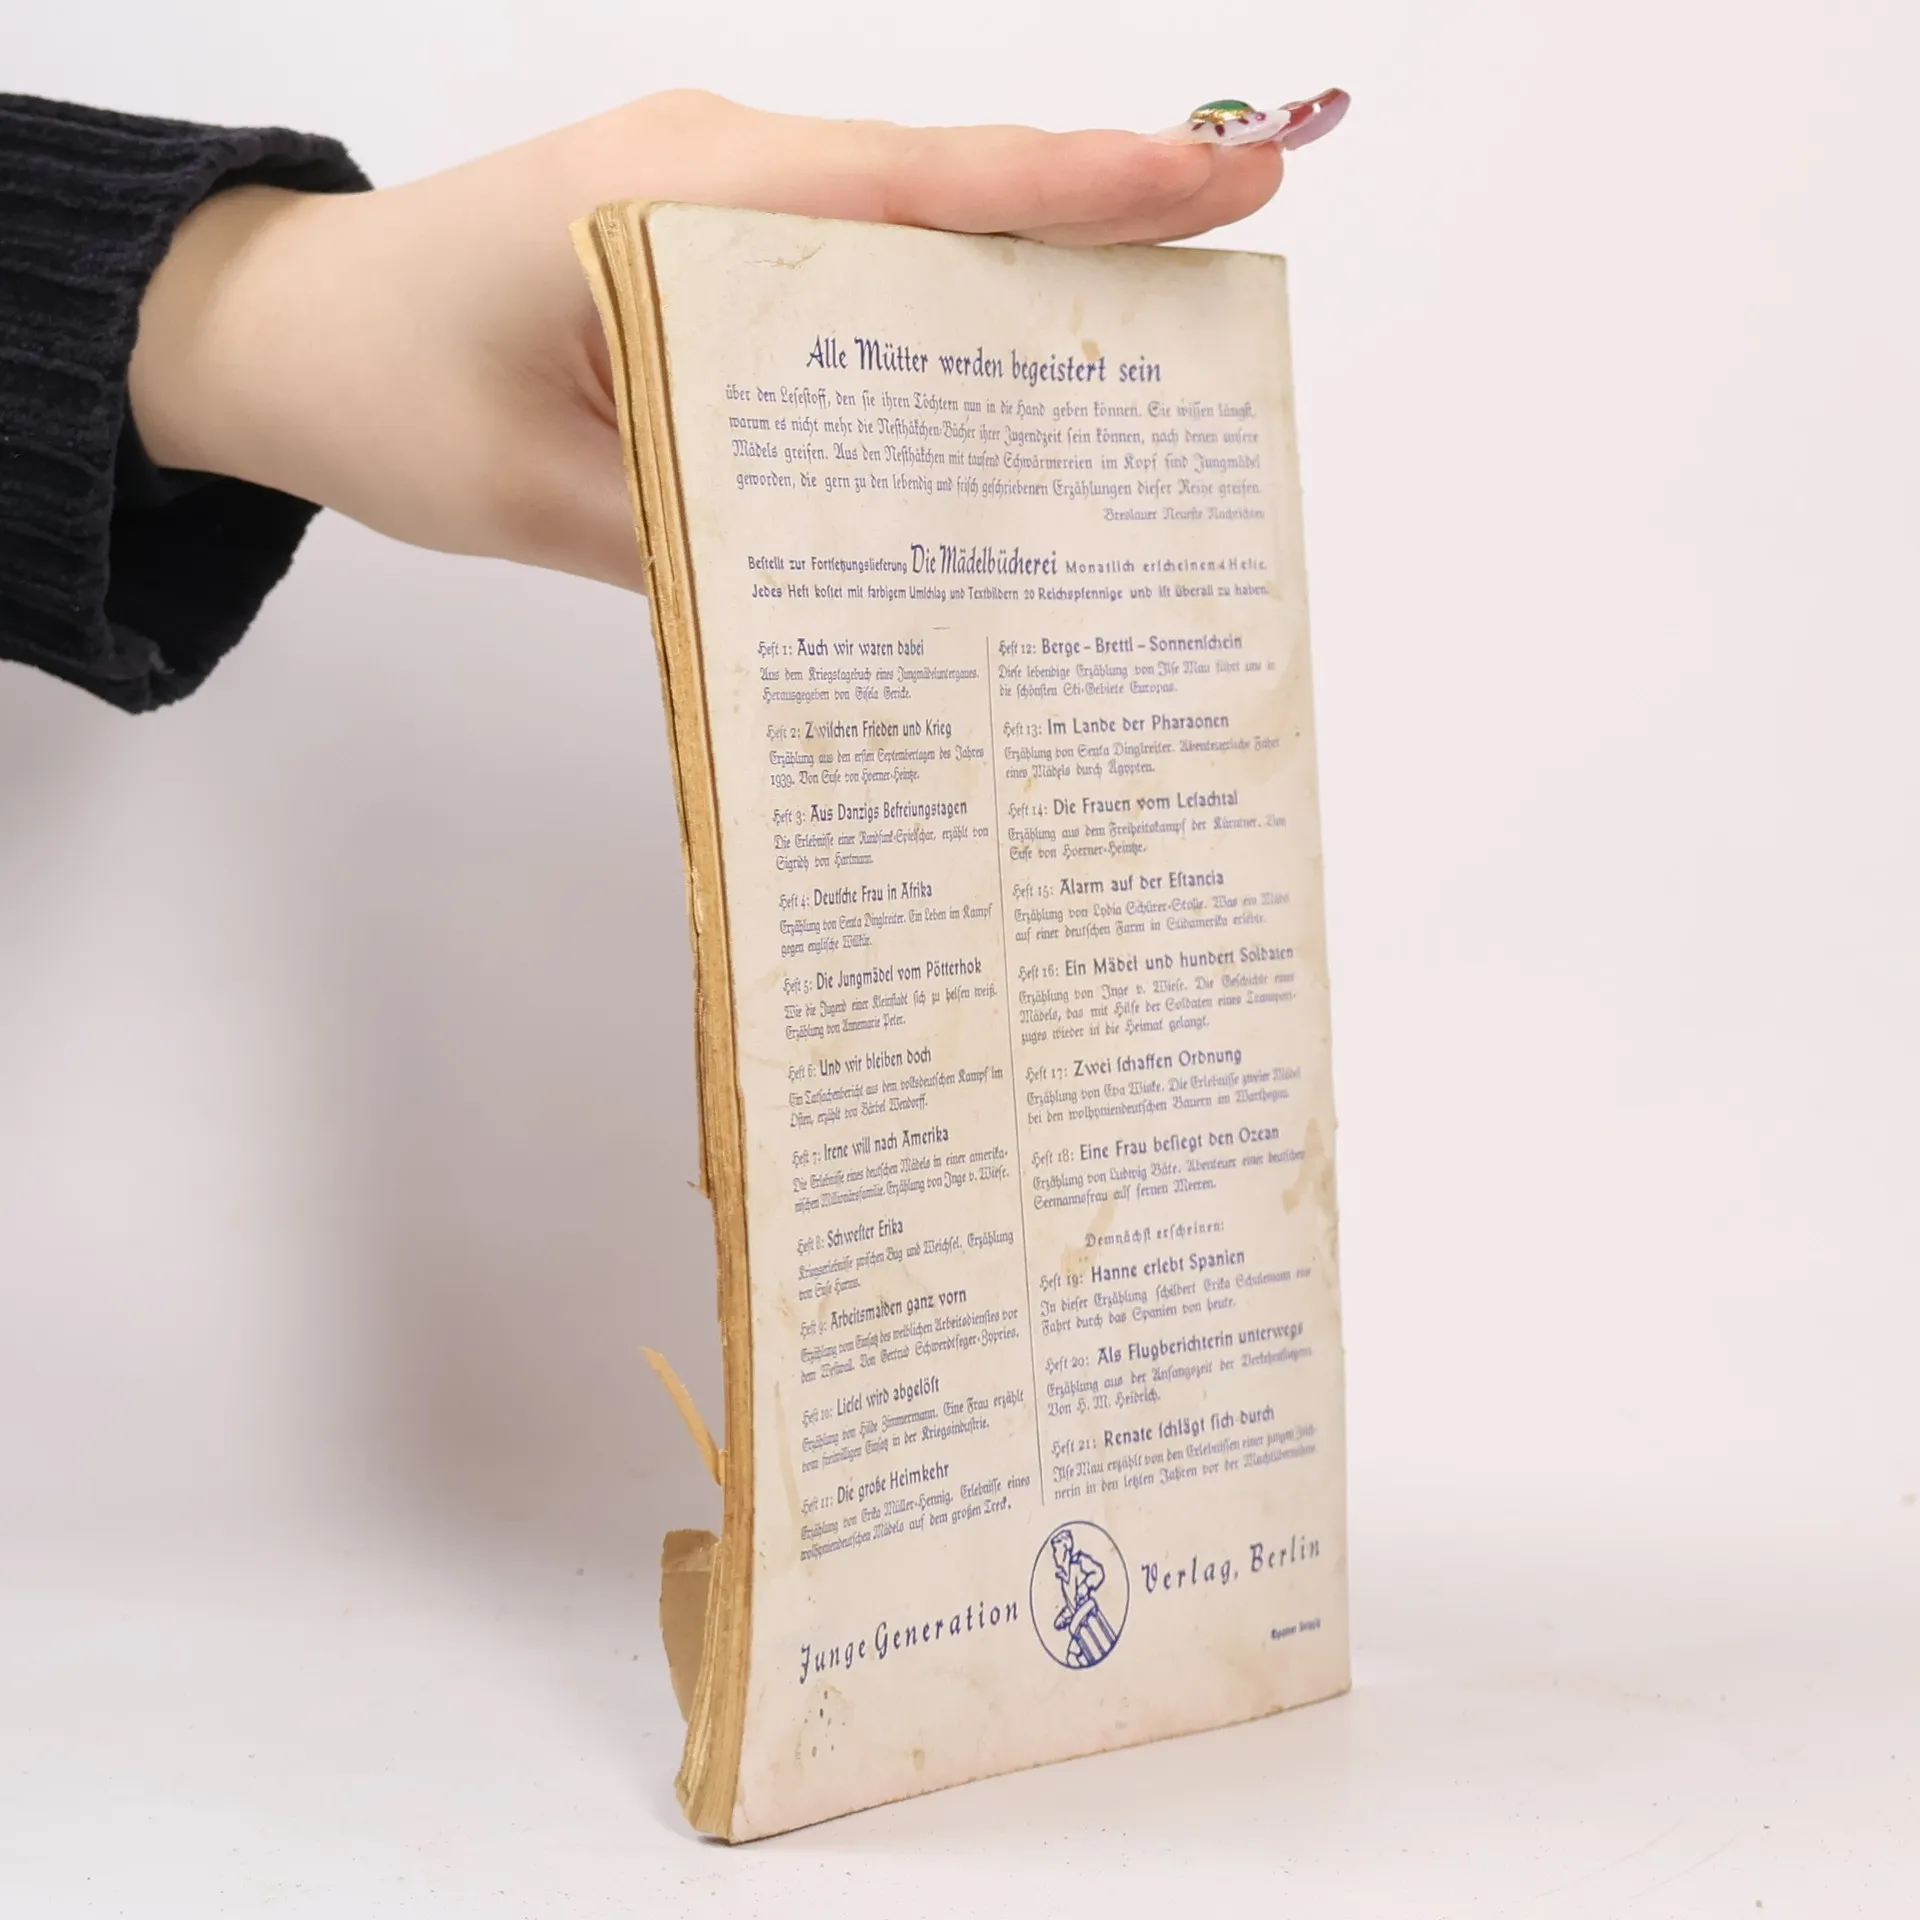 Alle Mütter werden begeistert sein
über den Lesestoff, den sie ihren Töchtern nun in die Hand geben können. Sie wissen längst,
warum es nicht mehr die Nesthäkchen-Bücher ihrer Jugendzeit sein können, nach denen unsere
Mädels greifen. Aus den Nesthäkchen mit tausend Schwärmereien im Kopf sind Jungmädel
geworden, die gern zu den lebendig und frisch geschriebenen Erzählungen dieser Reihe greifen.
Breslauer Neueste Nachrichten
Bestellt zur Fortsetzungslieferung Die Mädelbücherei Monatlich erscheinen 4 Hefte.
Jedes Heft kostet mit farbigem Umschlag und Textbildern 20 Reichspfennige und ist überall zu haben.
Heft 1: Auch wir waren dabei
Aus dem Kriegstagebuch eines Jungmädeluntergaues.
Herausgegeben von Gisela Gericke.
Heft 2: Zwischen Frieden und Krieg
Erzählung aus den ersten Septembertagen des Jahres
1939. Von Suse von Hoerner-Heintze.
Heft 3: Aus Danzigs Befreiungstagen
Die Erlebnisse einer Rundfunk-Spielschar, erzählt von
Sigridh von Hartmann.
Heft 4: Deutsche Frau in Afrika
Erzählung von Senta Dinglreiter. Ein Leben im Kampf
gegen englische Willkür.
Heft 5: Die Jungmädel vom Pötterhok
Wie die Jugend einer Kleinstadt sich zu helfen weiß.
Erzählung von Annemarie Peter.
Heft 6: Und wir bleiben doch
Ein Tatsachenbericht aus dem volksdeutschen Kampf im
Osten, erzählt von Bärbel Wendorff.
Heft 7: Irene will nach Amerika
Die Erlebnisse eines deutschen Mädels in einer amerika-
nischen Millionärsfamilie. Erzählung von Inge v. Wiese.
Heft 8: Schwester Erika
Kriegserlebnisse zwischen Bug und Weichsel. Erzählung
von Suse Harms.
Heft 9: Arbeitsmaiden ganz vorn
Erzählung vom Einsatz des weiblichen Arbeitsdienstes vor
dem Westwall. Von Gertrud Schwerdtfeger-Zypries.
Heft 10: Liesel wird abgelöst
Erzählung von Hilde Zimmermann. Eine Frau erzählt
vom freiwilligen Einsatz in der Kriegsindustrie.
Heft 11: Die große Heimkehr
Erzählung von Erika Müller-Hennig. Erlebnisse eines
wolhyniendeutschen Mädels auf dem großen Treck.
Heft 12: Berge – Brettl – Sonnenschein
Diese lebendige Erzählung von Ilse Mau führt uns in
die schönsten Ski-Gebiete Europas.
Heft 13: Im Lande der Pharaonen
Erzählung von Senta Dinglreiter. Abenteuerliche Fahrt
eines Mädels durch Ägypten.
Heft 14: Die Frauen vom Lesachtal
Erzählung aus dem Freiheitskampf der Kärntner. Von
Suse von Hoerner-Heintze.
Heft 15: Alarm auf der Estancia
Erzählung von Lydia Schürer-Stolle. Was ein Mädel
auf einer deutschen Farm in Südamerika erlebte.
Heft 16: Ein Mädel und hundert Soldaten
Erzählung von Inge v. Wiese. Die Geschichte eines
Mädels, das mit Hilfe der Soldaten eines Transport-
zuges wieder in die Heimat gelangt.
Heft 17: Zwei schaffen Ordnung
Erzählung von Eva Winke. Die Erlebnisse zweier Mädel
bei den wolhyniendeutschen Bauern im Warthegau.
Heft 18: Eine Frau besiegt den Ozean
Erzählung von Ludwig Bäte. Abenteuer einer deutschen
Seemannsfrau auf fernen Meeren.
Demnächst erscheinen:
Heft 19: Hanne erlebt Spanien
In dieser Erzählung schildert Erika Schulemann eine
Fahrt durch das Spanien von heute.
Heft 20: Als Flugberichterin unterwegs
Erzählung aus der Anfangszeit der Verkehrsfliegerei.
Von H. M. Heidrich.
Heft 21: Renate schlägt sich durch
Ilse Mau erzählt von den Erlebnissen einer jungen
nerin in den letzten Jahren vor der Machtübernahme.
Junge Generation Verlag, Berlin